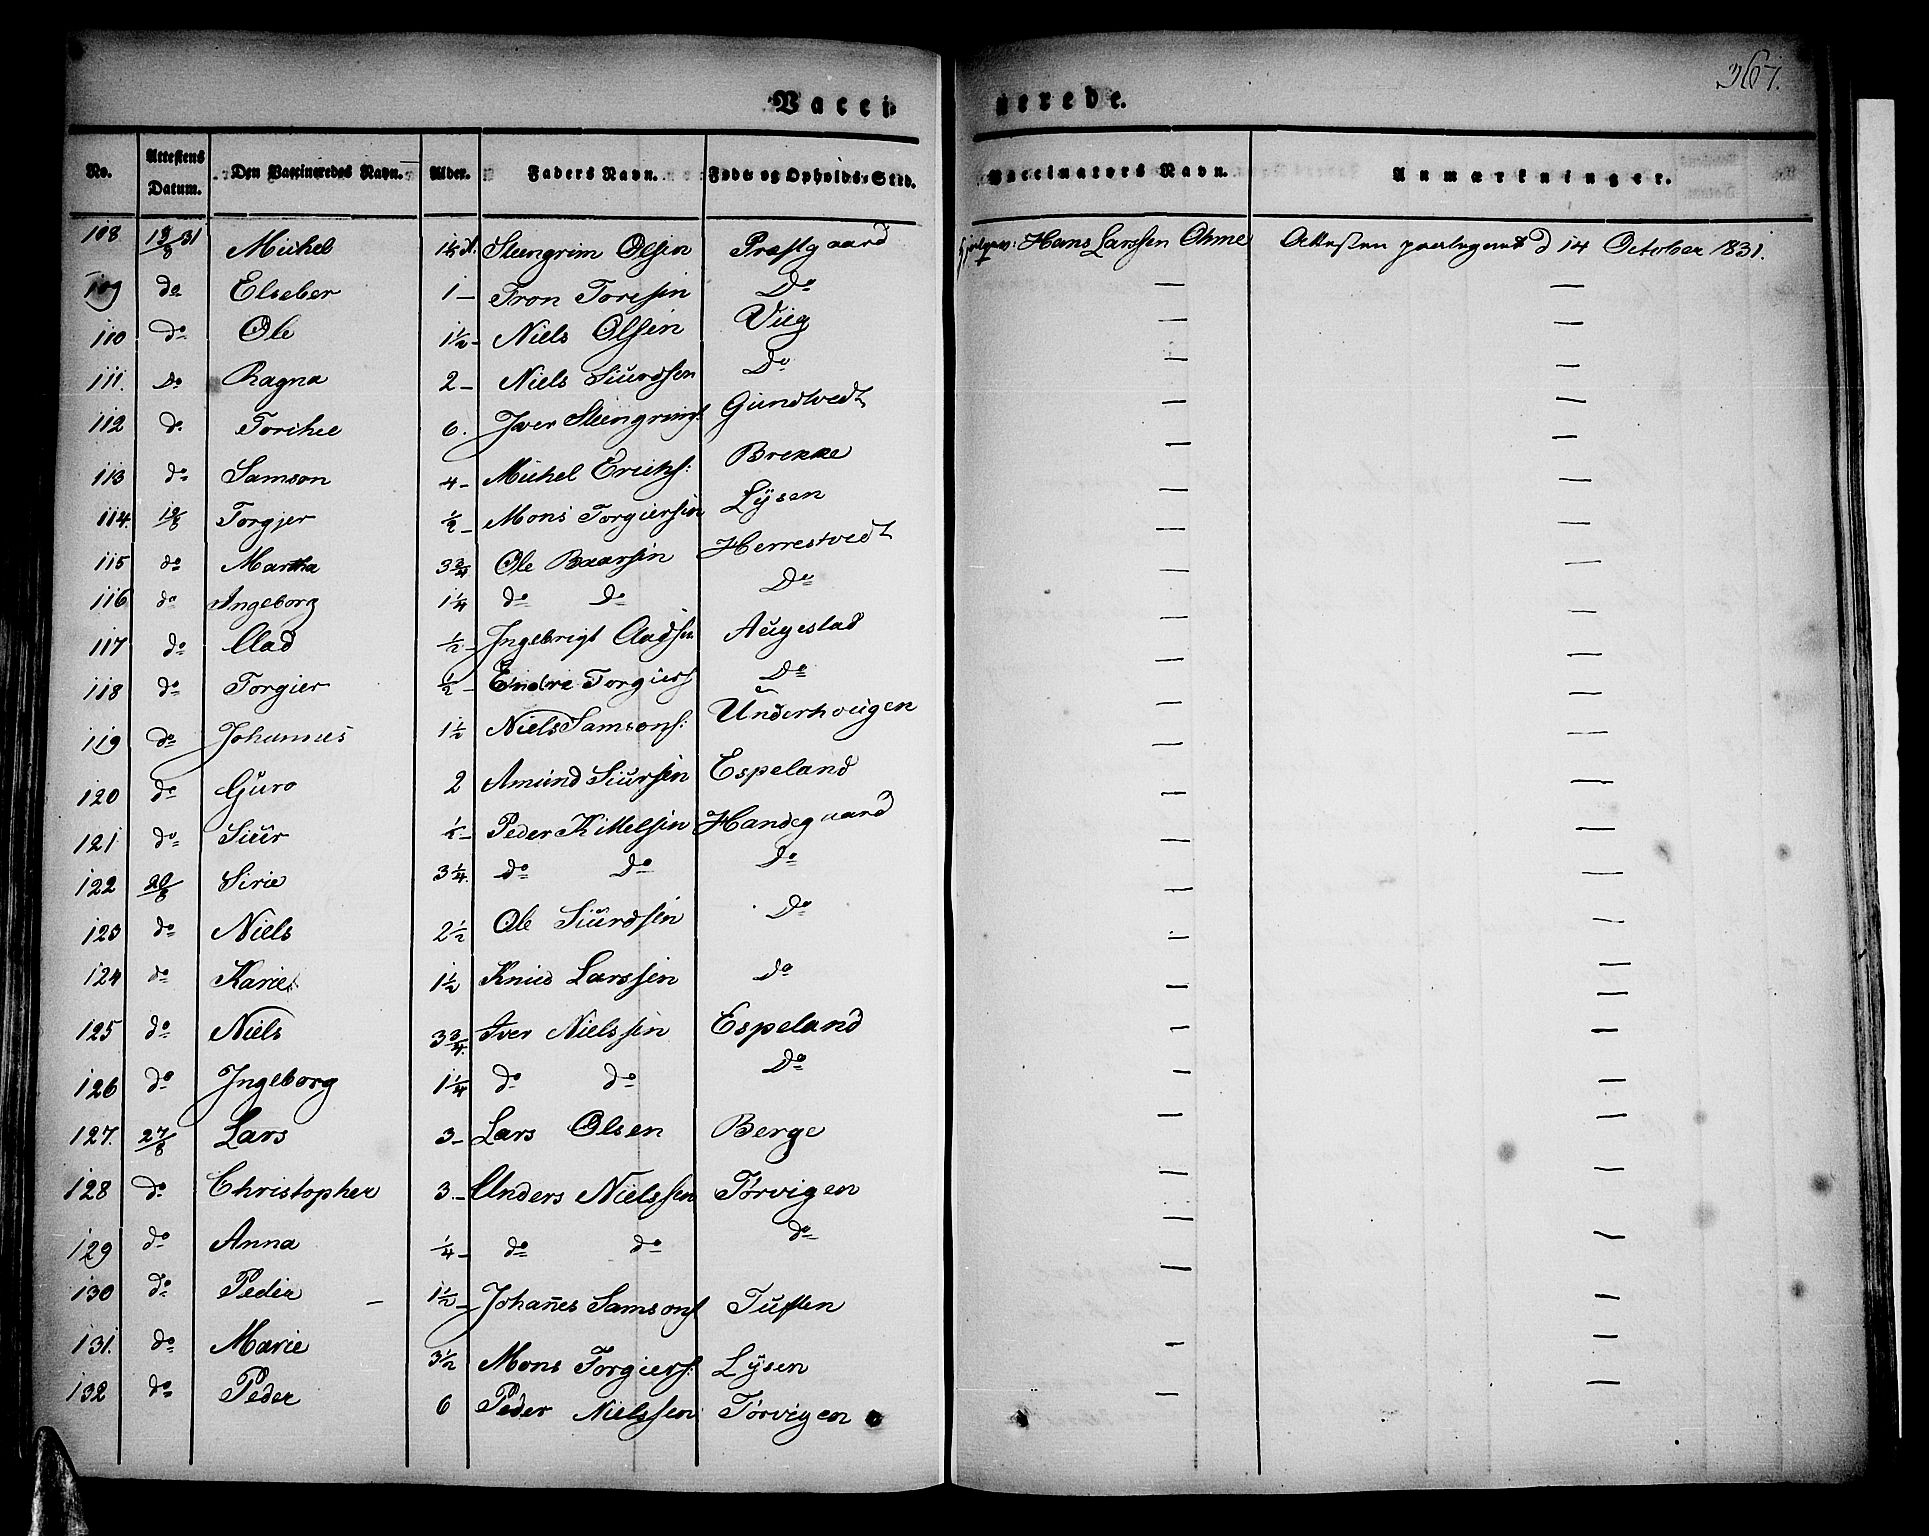 367.
Vacci nerede.
No. Attestens Datum. Den Vaccineredes Navn. Alder. Faders Navn. Føde og Opholds-Sted. Vaccinators Navn. Anmærkninger.
108 19/8 31 Michel Steengrim Olsen Præstgaard Hans Larssen Ohme Attesten d 14 October 1831.
109 do Elseber 1 — Tron Toressen Do — —
110 do Ole 1½ - Niels Olsen Viig — —
111. Do Ragna 2 - Niels Siurdsen Do — —
112 do Torchel 6. Iver Steengrims Gundtvedt — —
113 do Samson 4 - Michel Erichs: Brekke — —
114. 19/8 Torgjer ½ - Mons Torgiersen Lÿsen — —
115 do Martha 3¾ Ole Baarsen Herrestvedt — —
116 do Ingeborg 1¼ do Do Do — —
117 do Olad ½ - Ingebrigt Oladsen Augestad — —
118 do Torgier ½ - Endre Torgiers Do — —
119 do Johannes 1½ Niels Samsons: Underhougen — —
120 do Guro 2 Amund Siursen Espeland — —
121 do Siur ½ - Peder Kittelsen Handegaard — —
122 20/8 Sirie 3¼. do Do Do — —
123 do Niels 2½ Ole Siurdsen Do — —
124 do Karie 1½ Knud Larssen Do — —
125 do Niels 3¾. Iver Nielssen Espeland — —
126 do Ingeborg 1¼ do do Do — —
127. 27/8 Lars 3 - Lars Olsen Berge — —
128 do Christopher 3. - Anders Nielssen Tørvigen — —
129 do Anna ¼ - do do do — —
130 do Peder - 1½ - Johañes Samsons Tuften — —
131. do Marie 3½ Mons Torgiers: Lÿsen — —
132 do Peder 6 Peder Nielssen Tørvigen — —